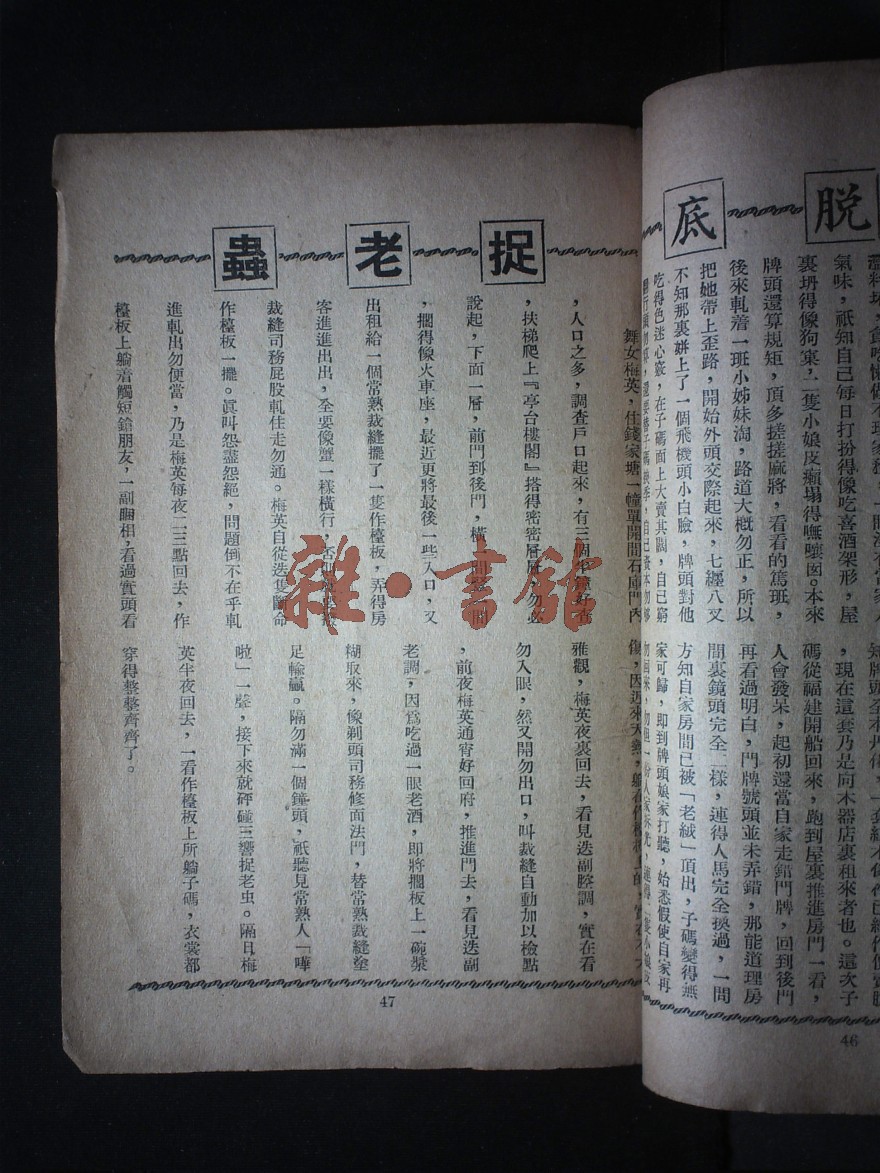 脫底
氣味，祇知自己每日打扮得像吃喜酒架形，屋
裏坍得像狗窠，一隻小娘皮癩塌得嘸嚷囪。本來
牌頭還算規矩，頂多搓搓麻將，看看的篤班，
後來軋着一班小姊妹淘，路道大概勿正，所以
把她帶上歪路，開始外頭交際起來，七纏八叉
不知那裏姘上了一個飛機頭小白臉，牌頭對他
吃得色迷心竅，在子碼面上大賣其關，自己窮
，現在這套乃是向木器店裏租來者也。這次子
碼從福建開船回來，跑到屋裏推進房門一看，
人會發呆，起初還當自家走錯門牌，回到後門
再看過明白，門牌號頭並未弄錯，那能道理房
間裏鏡頭完全二樣，連得人馬完全換過，一問
方知自家房間已被「老絨」頂出，子碼變得無
家可歸，即到牌頭娘家打聽，始悉假使自家再
46
捉老蟲
舞女梅英，住錢家塘一幢單開間石庫門內
，人口之多，調查戶口起來，有三個半鐘好查
，扶梯爬上『亭台樓閣』搭得密密層層，勿必
說起，下面一層，前門到後門，橫一間豎一間
，擱得像火車座，最近更將最後一些入口，又
出租給一個常熟裁縫擺了一隻作檯板，弄得房
客進進出出，全要像蟹一樣橫行，否
裁縫司務屁股軋住走勿通。梅英自從迭隻斷命
作檯板一擺。眞叫怨盡怨絕，問題倒不在乎軋
進軋出勿便當，乃是梅英每夜二三點回去，作
檯板上躺着觸短鎗朋友，一副睏相，看過實頭看
傷，因近來天熱，躺在作檯板
雅觀，梅英夜裏回去，看見迭副腔調，實在看
勿入眼，然又開勿出口，叫裁縫自動加以檢點
，前夜梅英通宵好回府，推進門去，看見迭副
老調，因爲吃過一眼老酒，即將擱板上一碗漿
糊取來，像剃頭司務修面法門，替常熟裁縫塗
足輸贏。隔勿滿一個鐘頭，祇聽見常熟人「嘩
啦」一聲，接下來就砰碰三響捉老虫。隔日梅
英半夜回去，一看作檯板上所躺子碼，衣裳都
穿得整整齊齊了。
47
雜·書館